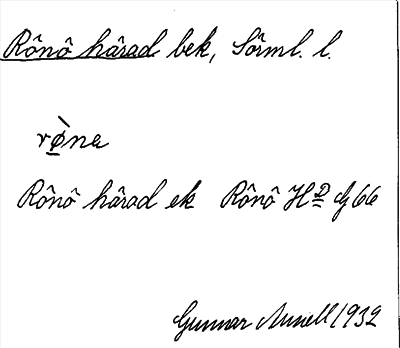 Rônô hârad bek, Sörml. l.
rø̱̀na
Rônô hârad ek Rônô Hd Gf 66
Gunnar Annell 1932